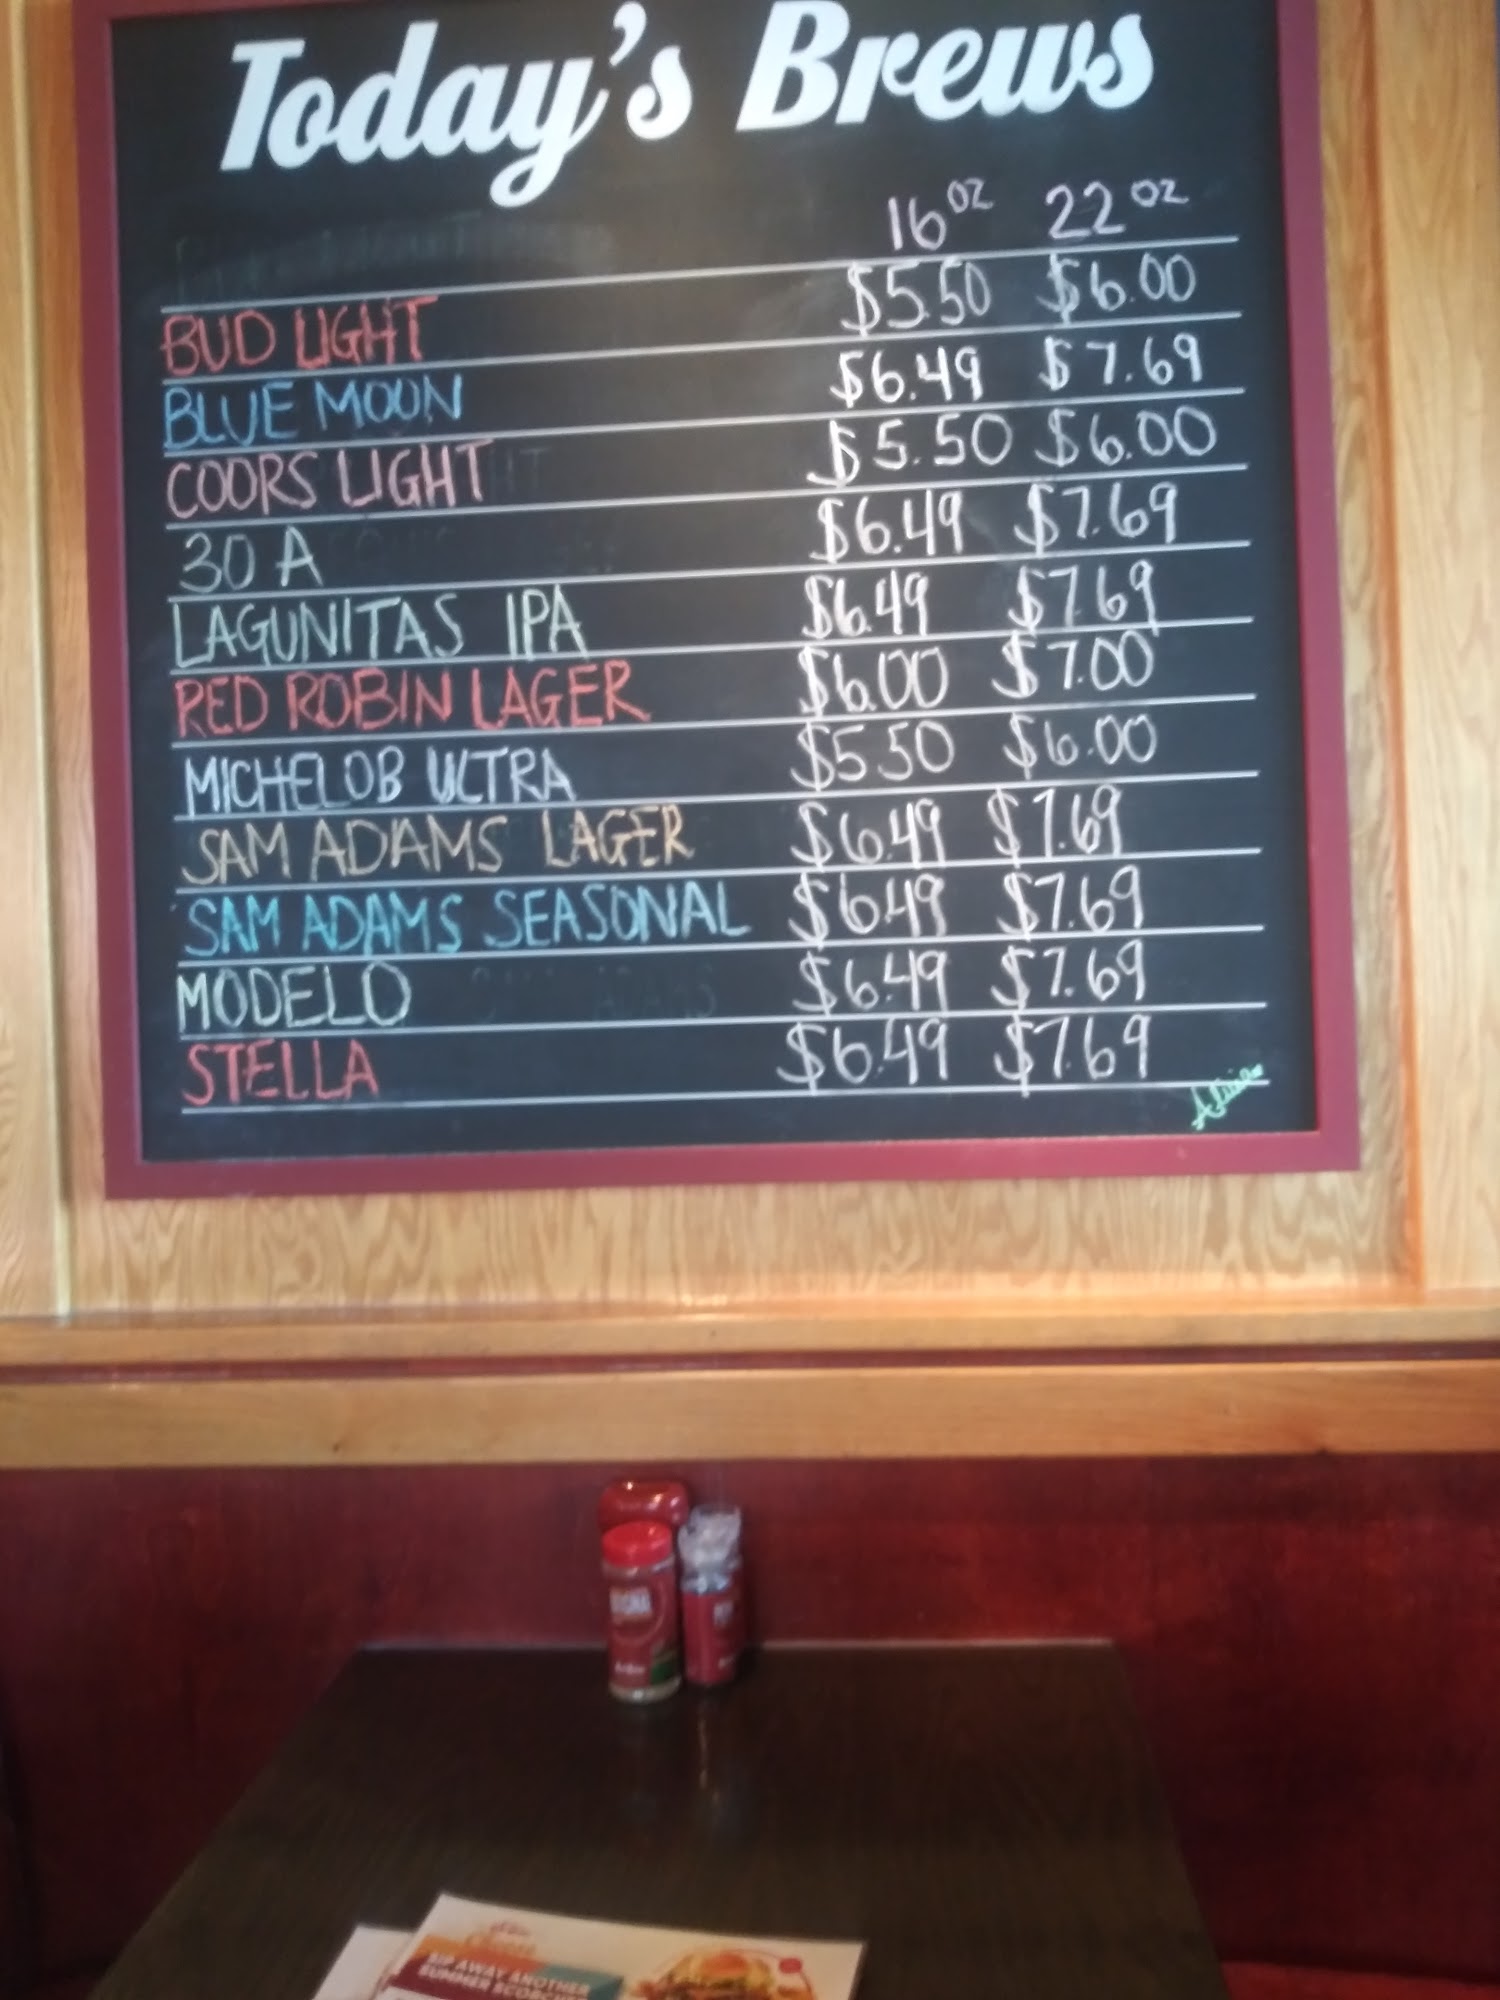 Today's Brews
16 oz 22 oz
BUD LIGHT $5.50 $6.00
BLUE MOON $6.49 $7.69
COORS LIGHT $5.50 $6.00
30 A $6.49 $7.69
LAGUNITAS IPA $6.49 $7.69
RED ROBIN LAGER $6.00 $7.00
MICHELOB ULTRA $5.50 $6.00
SAM ADAMS LAGER $6.49 $7.69
SAM ADAMS SEASONAL $6.49 $7.69
MODELO $6.49 $7.69
STELLA $6.49 $7.69
SIP AWAY ANOTHER
SUMMER